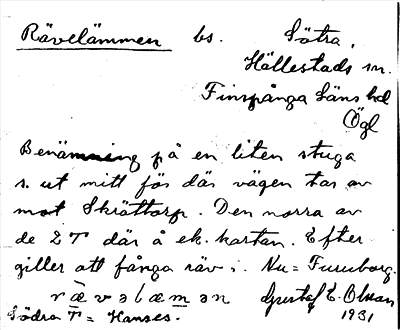 Rävelämmen bs. Sötra,
Hällestads sn.
Finspånga läns hd
Ögl
Benämning på en liten stuga
s. ut mitt för där vägen tar av
mot Skråttorp. Den norra av
de 2 T där å ek. kartan. Efter
giller att fånga räv i. Nu = Furuborg.
rävəlæmən Gustaf E. Olsson
Södra T = Hanses. 1931